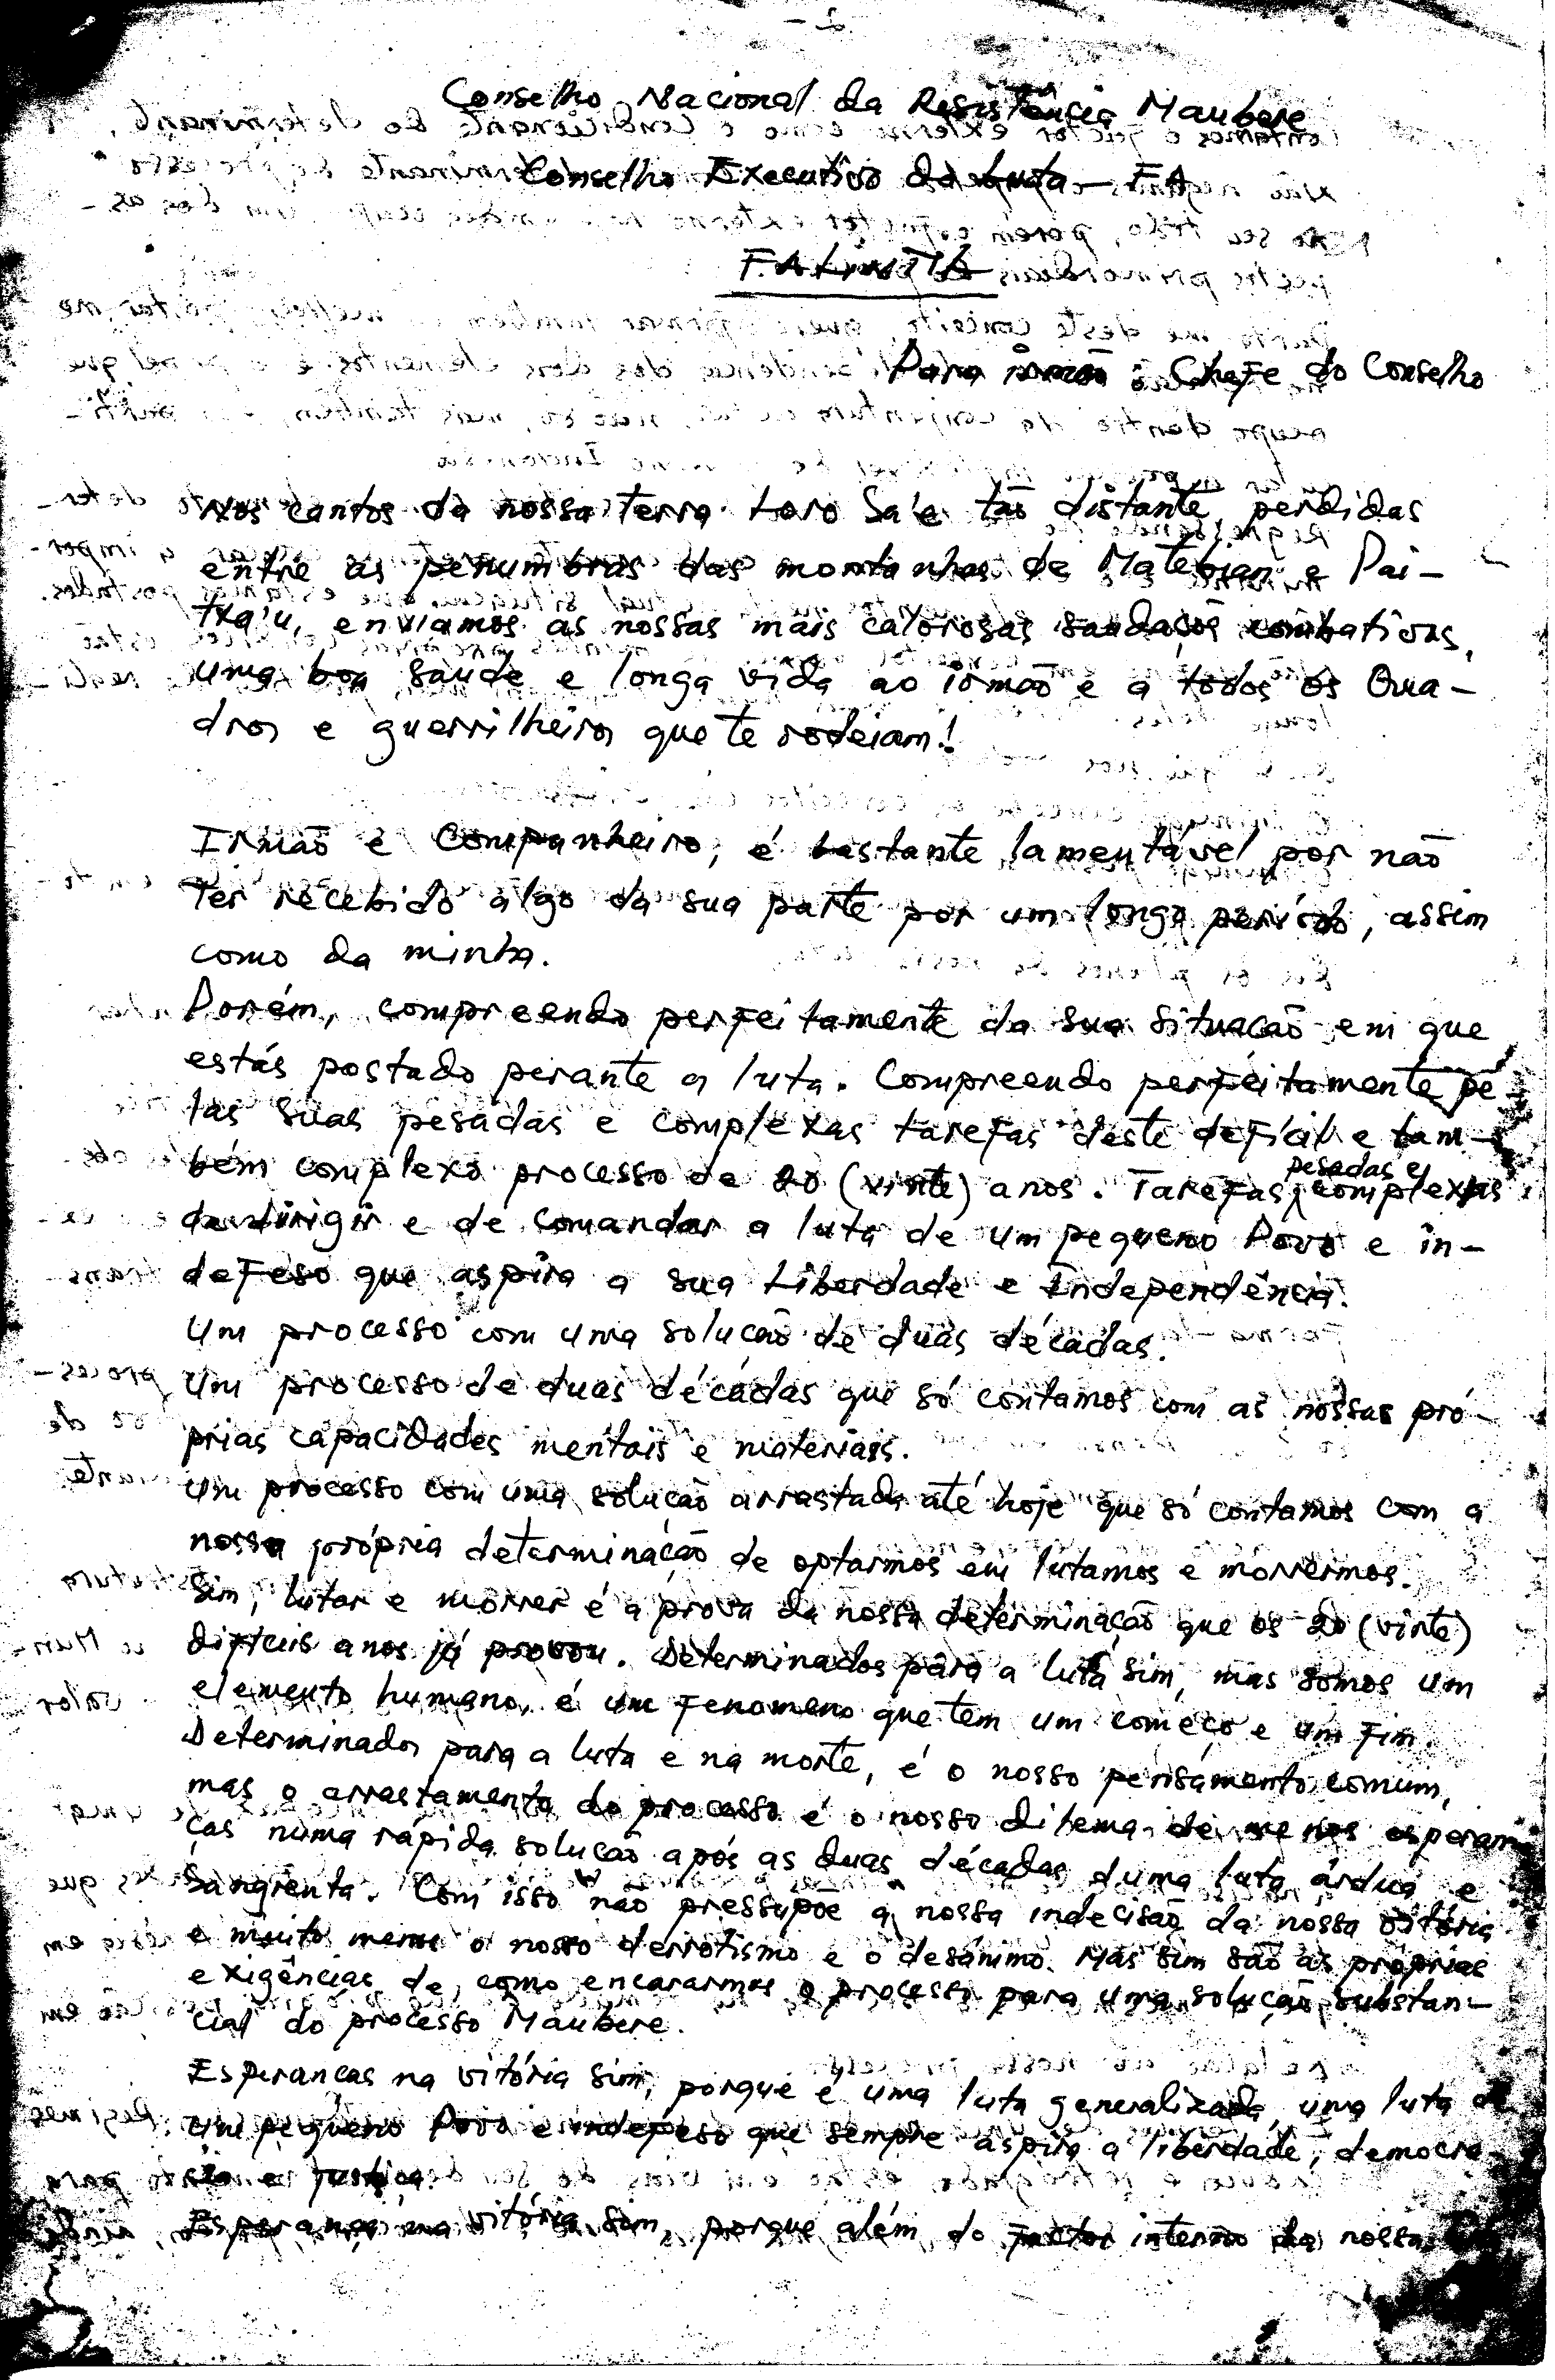 - 1 -
Conselho Nacional da Resistência Maubere
Conselho Executivo da Luta - F.A
FALINTIL
Para irmão Chefe do Conselho
Nos cantos da nossa Terra Loro Sa'e tão distante, perdidas
entre as penumbras das montanhas de Matebian e Pai-
txa'u, enviamos as nossas mais calorosas saudações combativas,
uma boa saúde e longa vida ao irmão e a todos os Qua-
dros e guerrilheiros que te rodeiam!
Irmão e Companheiro, é bastante lamentável por não
ter recebido algo da sua parte por um longo período, assim
como da minha.
Porém, compreendo perfeitamente da sua situação em que
estás postado perante a luta. Compreendo perfeitamente pe-
las suas pesadas e complexas tarefas deste defícil e tam-
bém complexo processo de 20 (vinte) anos. Tarefas pesadas e complexas
de dirigir e de comandar a luta de um pequeno Povo e in-
defeso que aspira a sua Liberdade e Independência.
Um processo com uma solução de duas décadas.
Um processo de duas décadas que só contamos com as nossas pró-
prias capacidades mentais e materiais.
Um processo com uma solução arrastada até hoje que só contamos com a
nossa própria determinação de optarmos em lutamos e morrermos.
Sim, lutar e morrer é a prova da nossa determinação que os 20 (vinte)
difíceis anos já provou. Determinados para a luta sim, mas somos um
elemento humano, é um fenomeno que tem um começo e um fim.
Determinados para a luta e na morte, é o nosso pensamento comum,
mas o arrastamento do processo é o nosso dilema de menos esperan-
ças numa rápida solução após as duas décadas duma luta árdua e
sangrenta. Com isso não pressupõe a nossa indecisão da nossa vitória
e muito menos o nosso derrotismo e o desánimo. Mas sim são as próprias
exigências de como encararmos o processo para uma solução substan-
cial do processo Maubere.
Esperanças na vitória sim, porque é uma luta generalizada, uma luta de
um pequeno Povo e indefeso que sempre aspira a liberdade, democra-
cia e justiça.
Esperança na vitória sim, porque além do factor interno da nossa